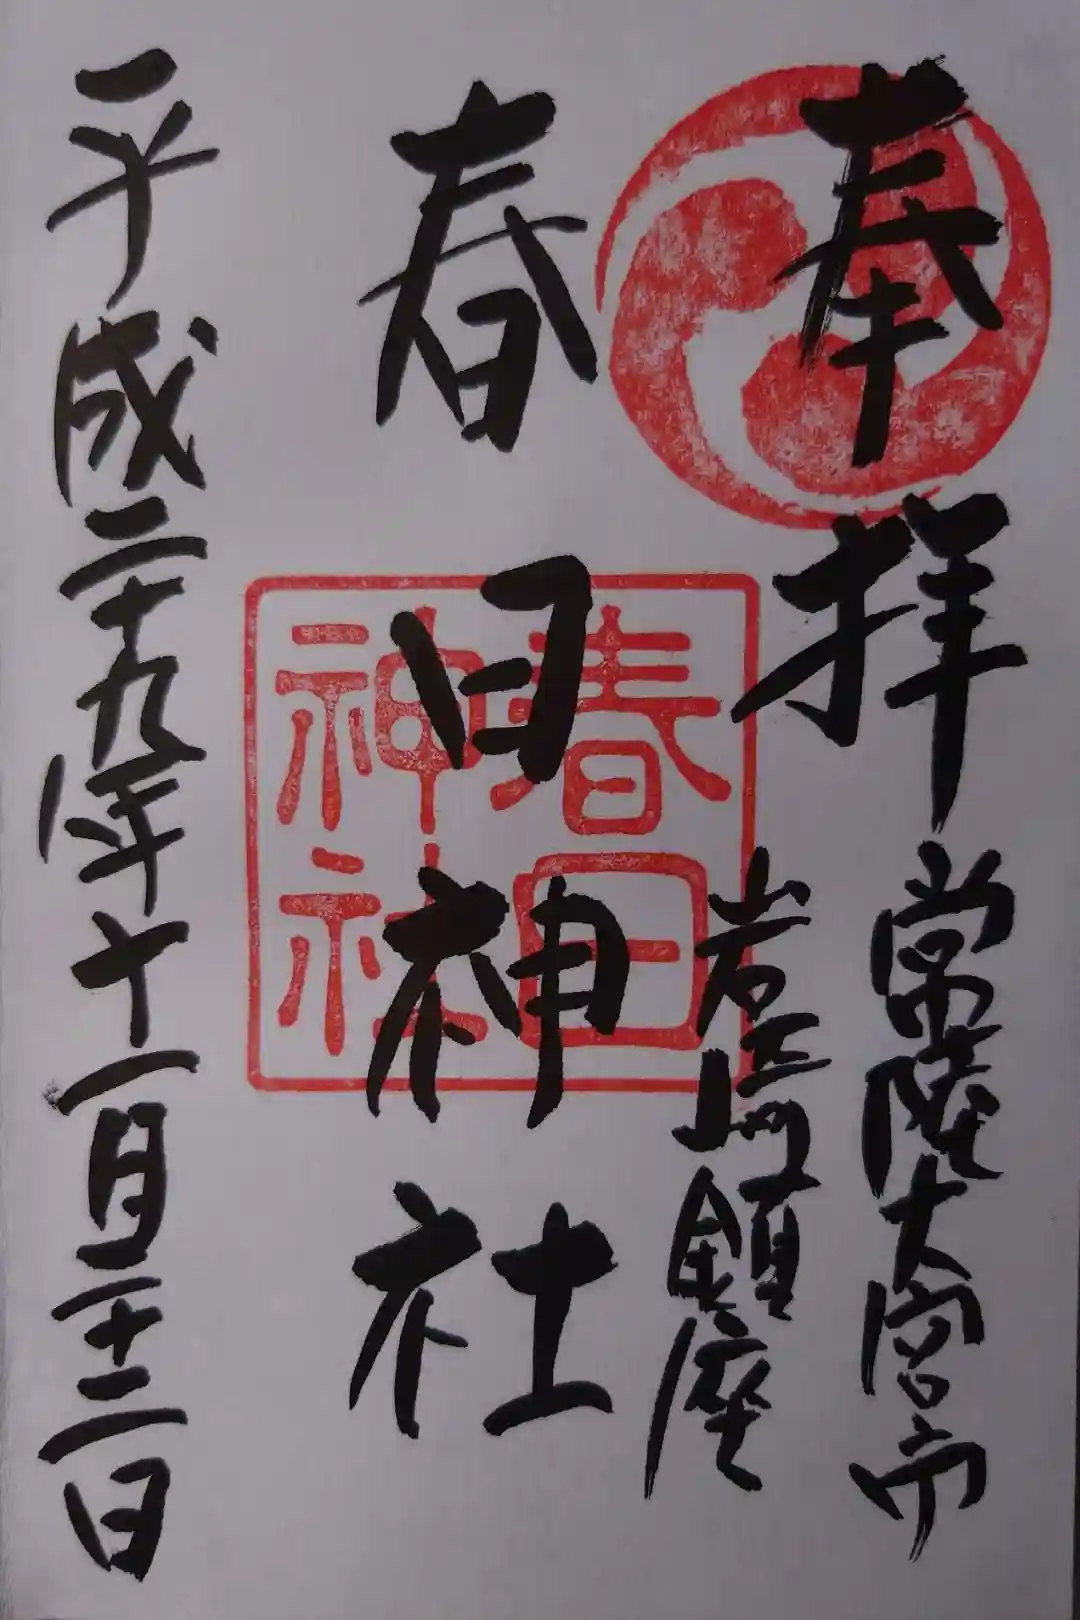 奉拝
常陸大宮市
岩崎鎮座
春日神社
春日
神社
平成二十九年十一月二十二日